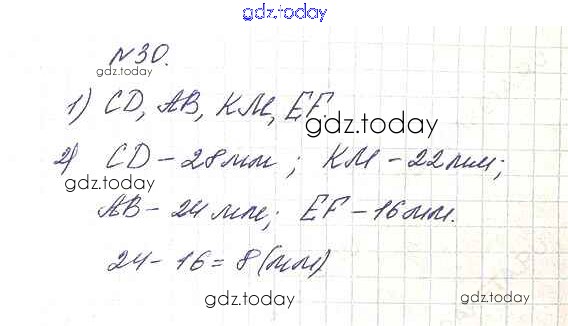 gdz.today
№30.
gdz.today
1) CD, AB, KM, EF.
gdz.today
2) CD – 28 мм ; KM – 22 мм;
gdz.today
AB – 24 мм; EF – 16 мм.
gdz.today
24 – 16 = 8 (мм)
gdz.today
gdz.today